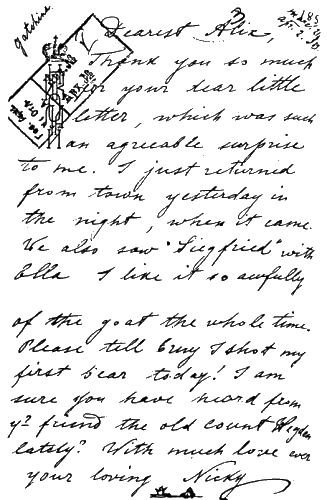 Gatchina
3
Dearest Alix,
Thank you so much
for your dear little
letter, which was such
an agreeable surprise
to me. I just returned
from town yesterday in
the night, when it came.
We also saw "Siegfried" with
Ella I like it so awfully
of the goat the whole time.
Please tell Erny I shot my
first bear today! I am
sure you have heard from
yr friend the old count
lately? With much love ever
your loving Nicky